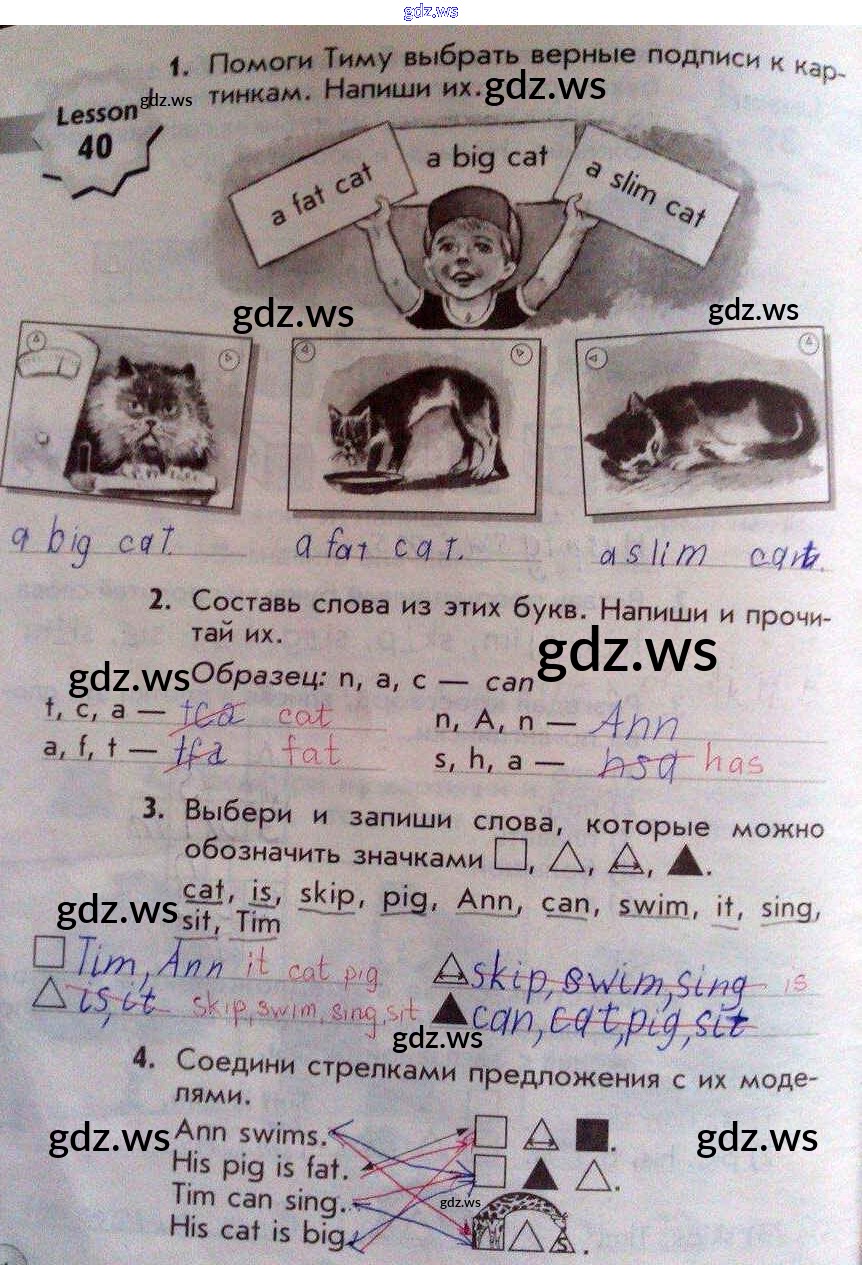 gdz.ws
1. Помоги Тиму выбрать верные подписи к кар-
тинкам. Напиши их.
gdz.ws
gdz.ws
Lesson
40
a fat cat
a big cat
a slim cat
gdz.ws
gdz.ws
a big cat.
a fat cat.
a slim cat.
2. Составь слова из этих букв. Напиши и прочи-
тай их.
gdz.ws
gdz.ws
Образец: n, a, c — can
t, c, a — tca cat
n, A, n — Ann
a, f, t — tfa fat
s, h, a — hsa has
3. Выбери и запиши слова, которые можно
обозначить значками □, △, △, ▲.
gdz.ws
cat, is, skip, pig, Ann, can, swim, it, sing,
sit, Tim
Tim, Ann it cat pig
skip, swim, sing is
is, it skip, swim, sing, sit
can, cat, pig, sit
gdz.ws
4. Соедини стрелками предложения с их моде-
лями.
gdz.ws
gdz.ws
Ann swims.
His pig is fat.
Tim can sing.
gdz.ws
His cat is big.
s